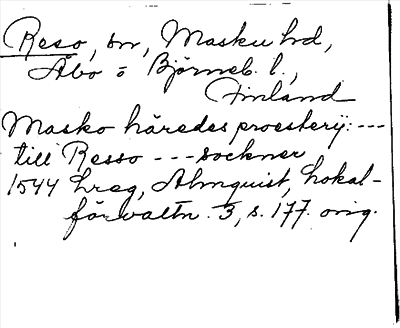 Reso, sn, Masku hd,
Åbo o Björneb. l.,
Finland
Masko häredes proestery: ---
till Resso --- sockner
1544 hreg, Almquist, Lokal-
förvaltn. 3, s. 177. orig.